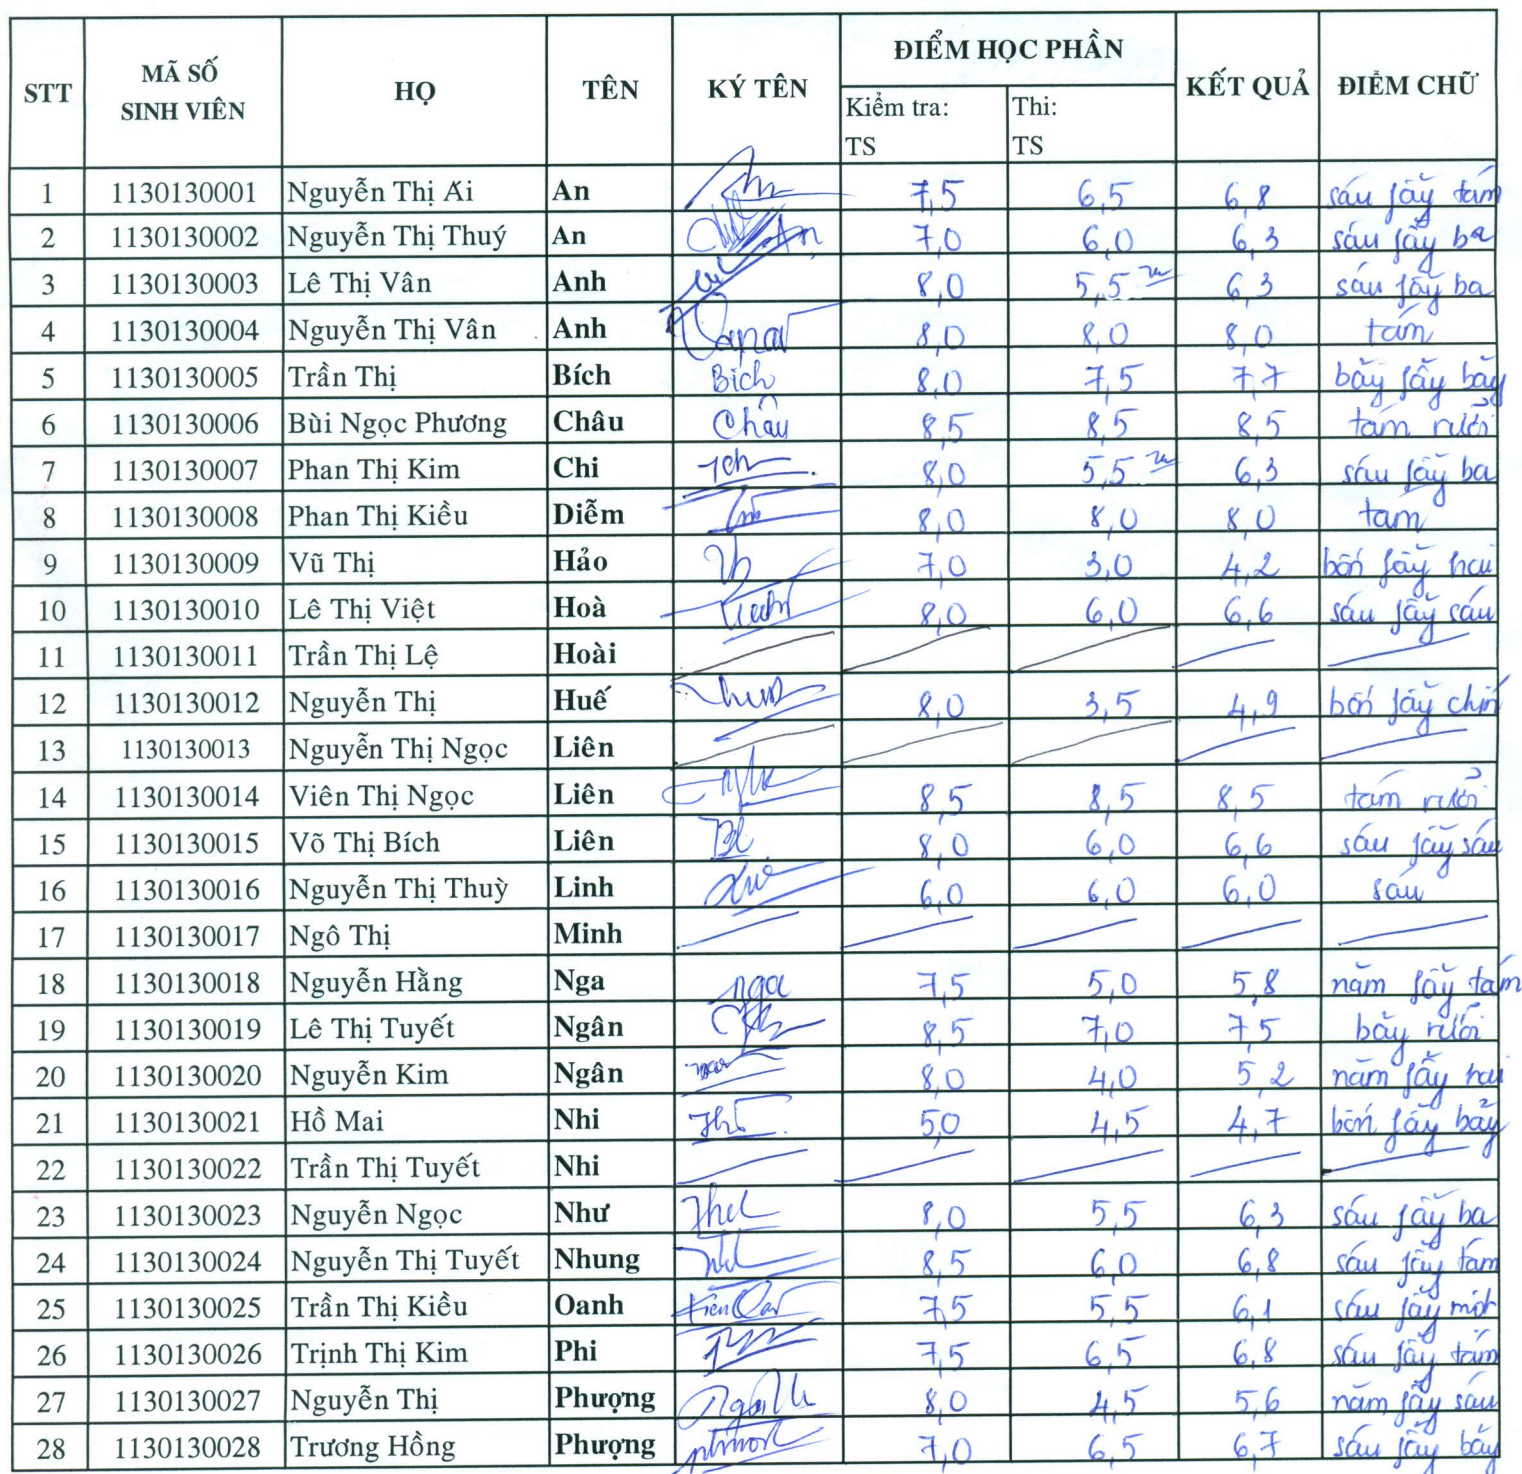 STT MÃ SỐ SINH VIÊN HỌ TÊN KÝ TÊN ĐIỂM HỌC PHẦN KẾT QUẢ ĐIỂM CHỮ
Kiểm tra: TS Thi: TS
1 1130130001 Nguyễn Thị Ái An 7,5 6,5 6,8 sáu phẩy tám
2 1130130002 Nguyễn Thị Thuý An 7,0 6,0 6,3 sáu phẩy ba
3 1130130003 Lê Thị Vân Anh 8,0 5,5 6,3 sáu phẩy ba
4 1130130004 Nguyễn Thị Vân Anh 8,0 8,0 8,0 tám
5 1130130005 Trần Thị Bích Bích 8,0 7,5 7,7 bảy phẩy bảy
6 1130130006 Bùi Ngọc Phương Châu Châu 8,5 8,5 8,5 tám rưỡi
7 1130130007 Phan Thị Kim Chi 8,0 5,5 6,3 sáu phẩy ba
8 1130130008 Phan Thị Kiều Diễm 8,0 8,0 8,0 tám
9 1130130009 Vũ Thị Hảo 7,0 3,0 4,2 bốn phẩy hai
10 1130130010 Lê Thị Việt Hoà 8,0 6,0 6,6 sáu phẩy sáu
11 1130130011 Trần Thị Lệ Hoài
12 1130130012 Nguyễn Thị Huế 8,0 3,5 4,9 bốn phẩy chín
13 1130130013 Nguyễn Thị Ngọc Liên
14 1130130014 Viên Thị Ngọc Liên 8,5 8,5 8,5 tám rưỡi
15 1130130015 Võ Thị Bích Liên 8,0 6,0 6,6 sáu phẩy sáu
16 1130130016 Nguyễn Thị Thuỳ Linh 6,0 6,0 6,0 sáu
17 1130130017 Ngô Thị Minh
18 1130130018 Nguyễn Hằng Nga nga 7,5 5,0 5,8 năm phẩy tám
19 1130130019 Lê Thị Tuyết Ngân 8,5 7,0 7,5 bảy rưỡi
20 1130130020 Nguyễn Kim Ngân 8,0 4,0 5,2 năm phẩy hai
21 1130130021 Hồ Mai Nhi 5,0 4,5 4,7 bốn phẩy bảy
22 1130130022 Trần Thị Tuyết Nhi
23 1130130023 Nguyễn Ngọc Như 8,0 5,5 6,3 sáu phẩy ba
24 1130130024 Nguyễn Thị Tuyết Nhung 8,5 6,0 6,8 sáu phẩy tám
25 1130130025 Trần Thị Kiều Oanh 7,5 5,5 6,1 sáu phẩy một
26 1130130026 Trịnh Thị Kim Phi 7,5 6,5 6,8 sáu phẩy tám
27 1130130027 Nguyễn Thị Phượng 8,0 4,5 5,6 năm phẩy sáu
28 1130130028 Trương Hồng Phượng 7,0 6,5 6,7 sáu phẩy bảy